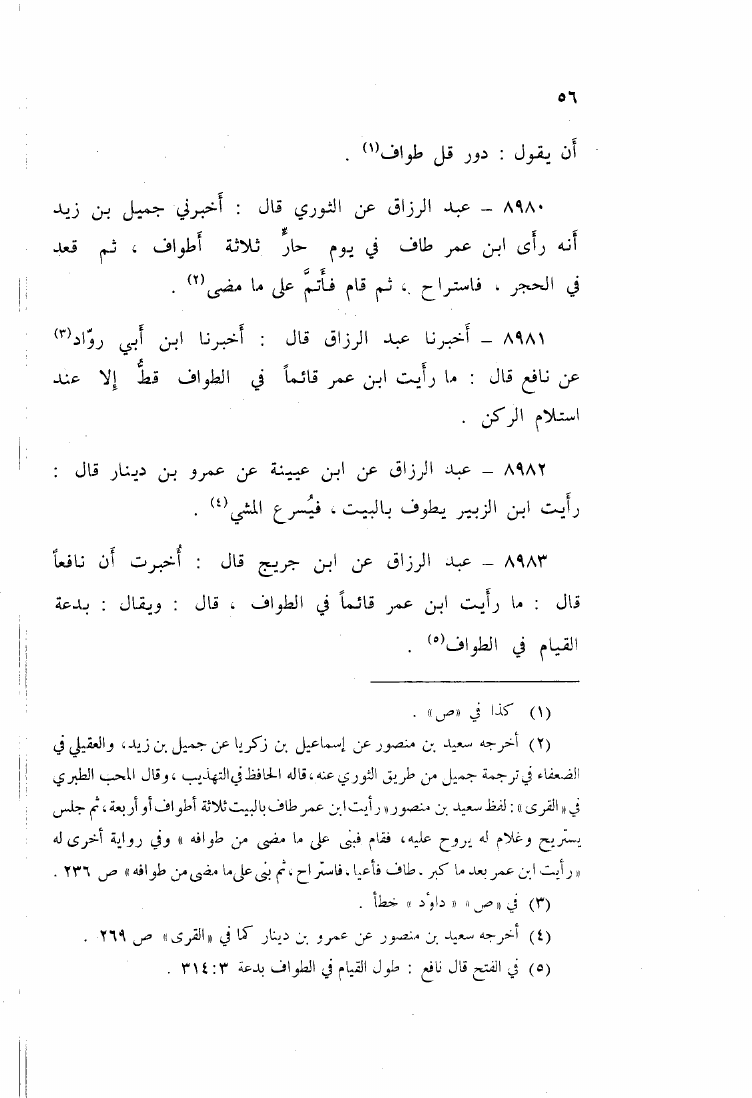 ٥٦
أن يقول : دور قل طواف(١) .
٨٩٨٠ – عبد الرزاق عن الثوري قال : أخبرني جميل بن زيد
أنه رأى ابن عمر طاف في يوم حارٍّ ثلاثة أطواف ، ثم قعد
في الحجر ، فاستراح ، ثم قام فأتمَّ على ما مضى(٢) .
٨٩٨١ – أخبرنا عبد الرزاق قال : أخبرنا ابن أبي روّاد(٣)
عن نافع قال : ما رأيت ابن عمر قائماً في الطواف قطُّ إلا عند
استلام الركن .
٨٩٨٢ – عبد الرزاق عن ابن عيينة عن عمرو بن دينار قال :
رأيت ابن الزبير يطوف بالبيت ، فيُسرع المشي(٤) .
٨٩٨٣ – عبد الرزاق عن ابن جريج قال : أُخبرت أن نافعاً
قال : ما رأيت ابن عمر قائماً في الطواف ، قال : ويقال : بدعة
القيام في الطواف(٥) .
(١) كذا في «ص» .
(٢) أخرجه سعيد بن منصور عن إسماعيل بن زكريا عن جميل بن زيد، والعقيلي في
الضعفاء في ترجمة جميل من طريق الثوري عنه، قاله الحافظ في التهذيب ، وقال المحب الطبري
في «القرى» : لفظ سعيد بن منصور «رأيت ابن عمر طاف بالبيت ثلاثة أطواف أو أربعة، ثم جلس
يستريح وغلام له يروح عليه، فقام فبنى على ما مضى من طوافه » وفي رواية أخرى له
«رأيت ابن عمر بعد ما كبر . طاف فأعيا، فاستراح ، ثم بنى على ما مضى من طوافه» ص ٢٣٦ .
(٣) في «ص» « داوٗد » خطأ .
(٤) أخرجه سعيد بن منصور عن عمرو بن دينار كما في «القرى» ص ٢٦٩ .
(٥) في الفتح قال نافع : طول القيام في الطواف بدعة ٣١٤:٣ .